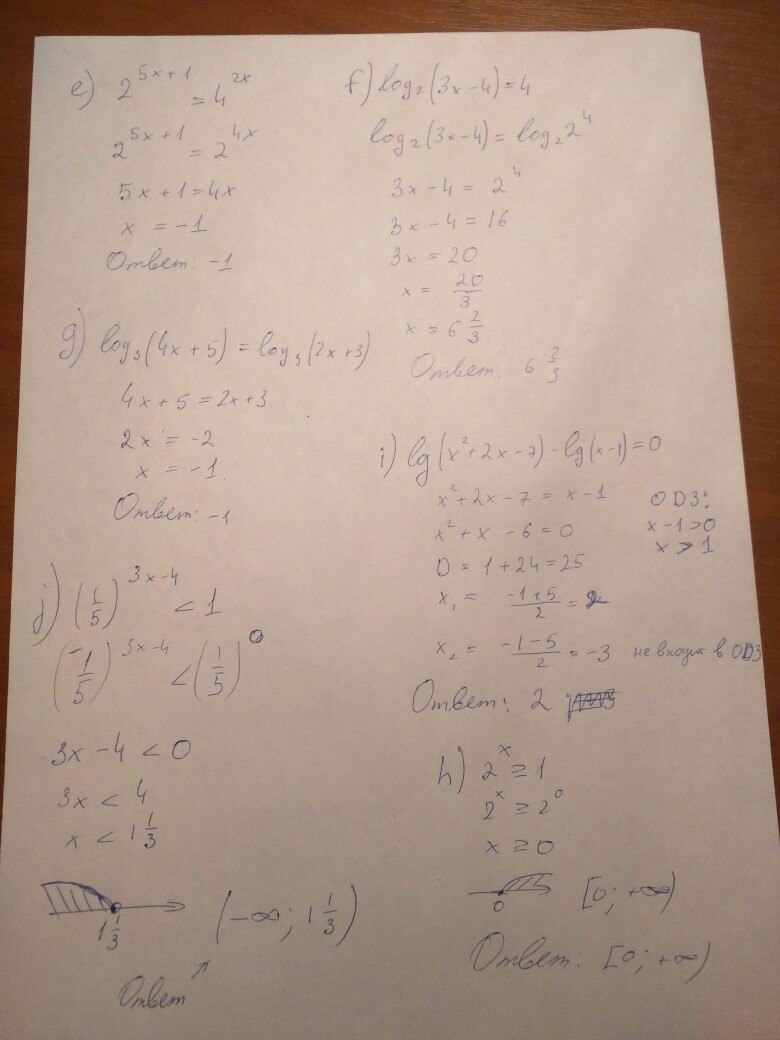 e) 2^(5x+1) = 4^(2x)
2^(5x+1) = 2^(4x)
5x + 1 = 4x
x = -1
Ответ: -1
f) log₂(3x-4) = 4
log₂(3x-4) = log₂ 2⁴
3x - 4 = 2⁴
3x - 4 = 16
3x = 20
x = 20/3
x = 6 2/3
Ответ. 6 2/3
g) log₃(4x+5) = log₃(2x+3)
4x + 5 = 2x + 3
2x = -2
x = -1.
Ответ: -1
i) lg(x²+2x-7) - lg(x-1) = 0
x²+2x-7 = x-1
x²+x-6=0
D = 1+24=25
x₁ = (-1+5)/2 = 2
x₂ = (-1-5)/2 = -3 не входит в ОДЗ
ОДЗ:
x-1>0
x > 1
Ответ: 2
j) (1/5)^(3x-4) < 1
(1/5)^(3x-4) < (1/5)^0
3x - 4 < 0
3x < 4
x < 1 1/3
1 1/3
(-∞; 1 1/3)
Ответ
h) 2^x ≥ 1
2^x ≥ 2^0
x ≥ 0
0
[0; +∞)
Ответ: [0; +∞)